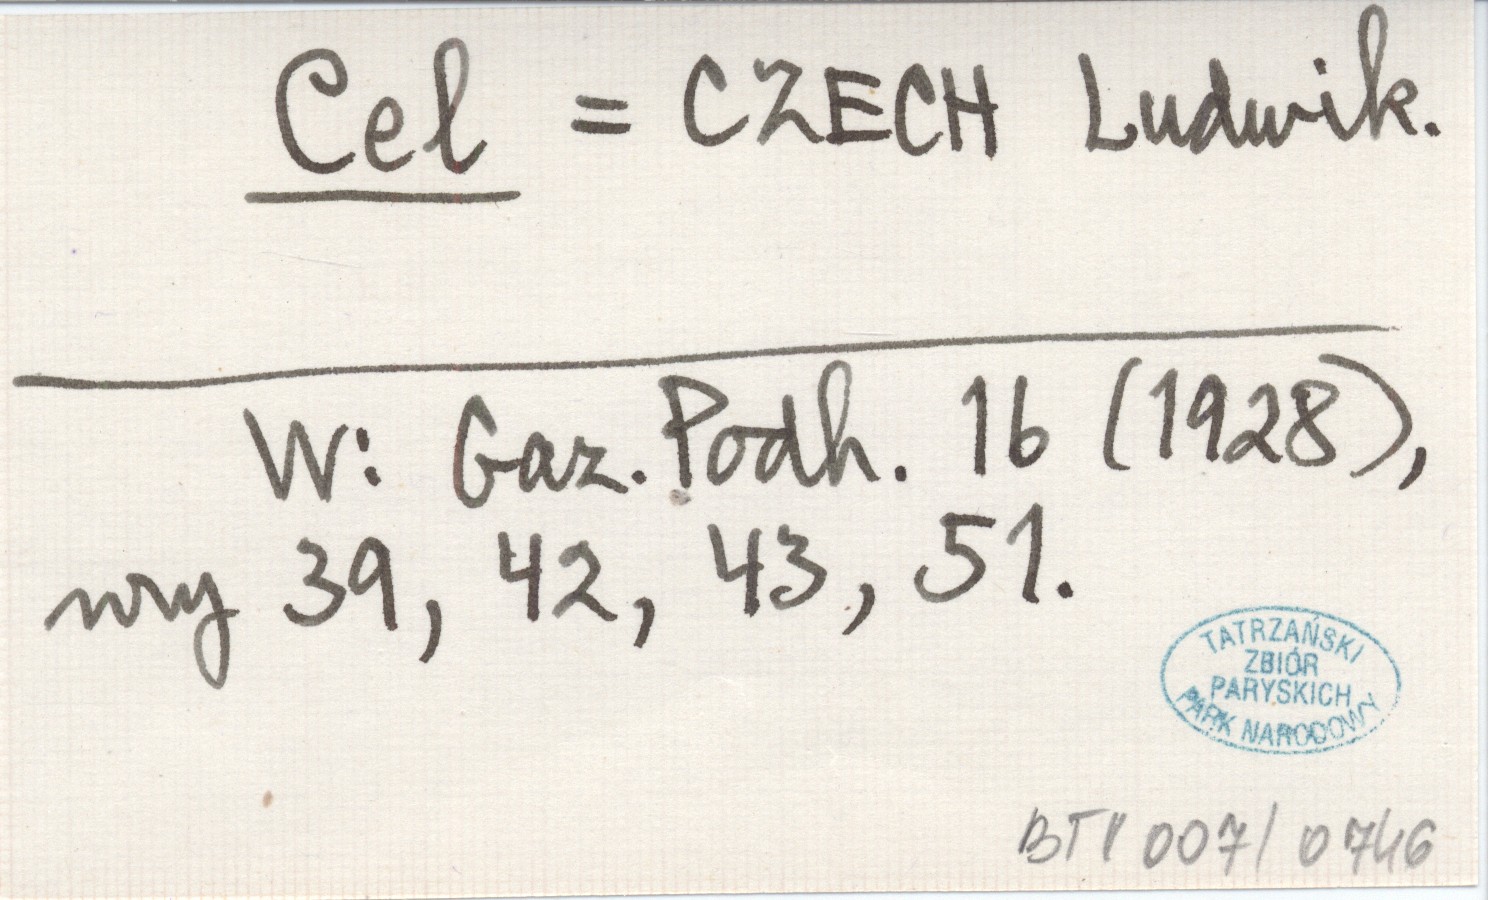 Cel = CZECH Ludwik.
W: Gaz. Podh. 16 (1928),
nry 39, 42, 43, 51.
TATRZAŃSKI
ZBIÓR
PARYSKICH
PARK NARODOWY
BTP 007/0746